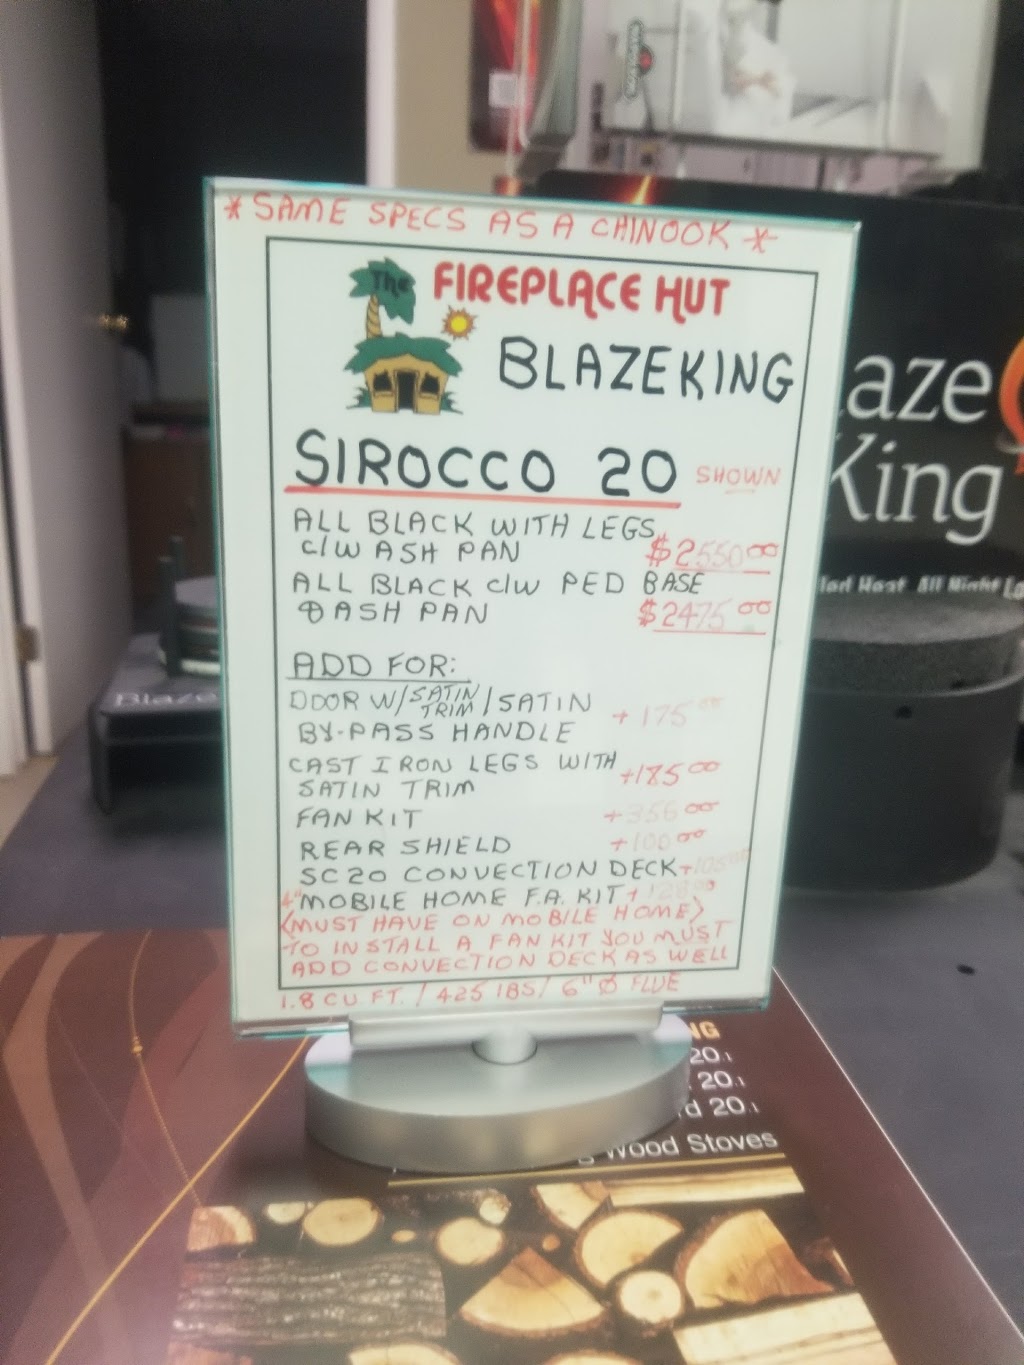 * SAME SPECS AS A CHINOOK *
The FIREPLACE HUT
BLAZEKING
SIROCCO 20 SHOWN
ALL BLACK WITH LEGS
C/W ASH PAN $2550.00
ALL BLACK C/W PED BASE
ASH PAN $2475.00
ADD FOR:
DOOR W/ SATIN TRIM / SATIN
BY-PASS HANDLE +175.00
CAST IRON LEGS WITH
SATIN TRIM +185.00
FAN KIT +356.00
REAR SHIELD +100.00
SC20 CONVECTION DECK
4" MOBILE HOME F.A. KIT
<MUST HAVE ON MOBILE HOME>
TO INSTALL A FAN KIT YOU MUST
ADD CONVECTION DECK AS WELL
1.8 CU FT. / 425 lBS / 6" Ø FLUE
aze
King
Heat. All Night
Blaze
NG
20.1
20.1
rd 20.1
Wood Stoves